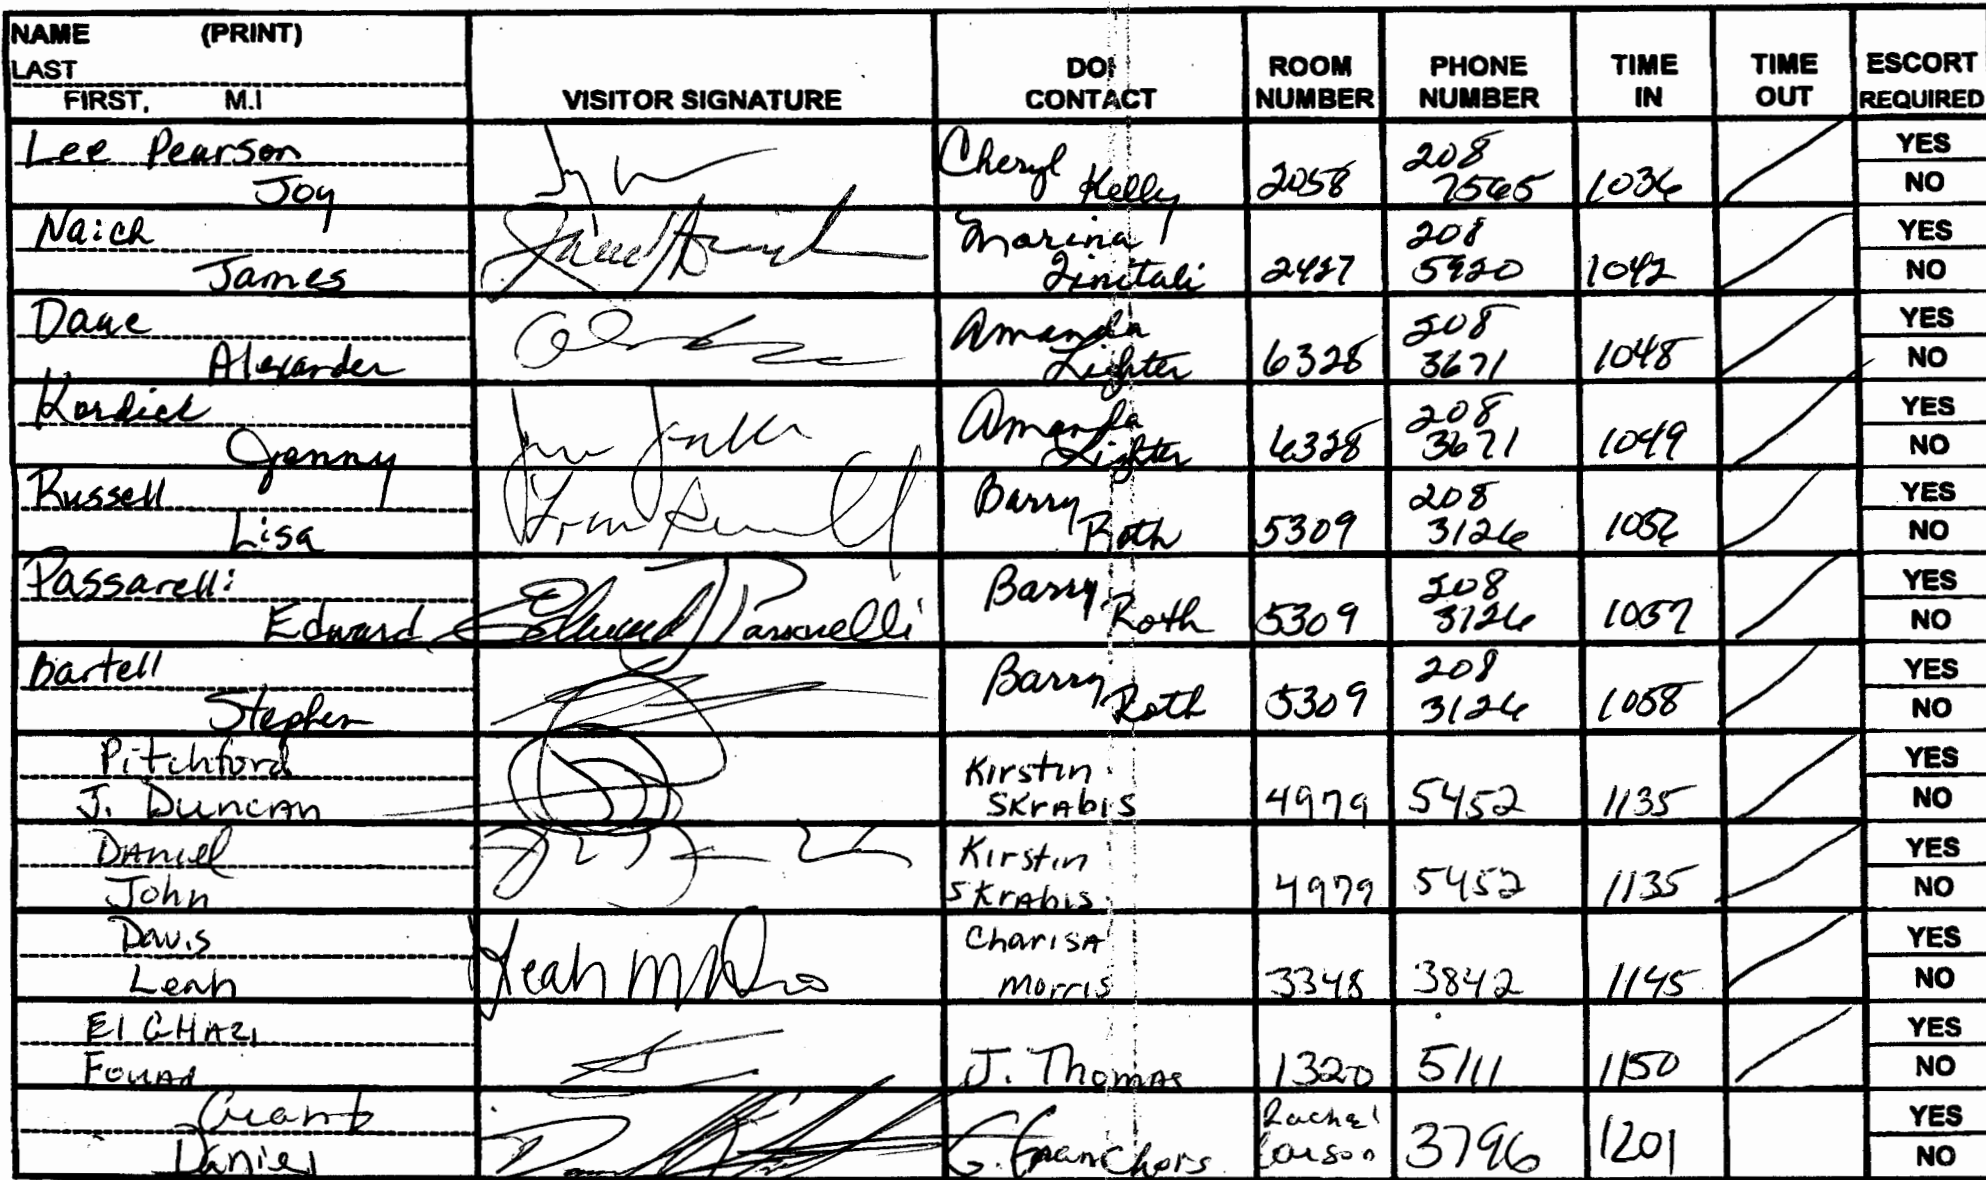 NAME (PRINT)
LAST
FIRST, M.I
VISITOR SIGNATURE
DOI
CONTACT
ROOM
NUMBER
PHONE
NUMBER
TIME
IN
TIME
OUT
ESCORT
REQUIRED
Lee Pearson
Joy
Cheryl
Kelly
2058
208
7565
1036
YES
NO
Naich
James
Marina
2427
208
5920
1042
YES
NO
Dave
Alexander
Amanda
Lighter
6328
208
3671
1048
YES
NO
Kordick
Jenny
Amanda
Lighter
6328
208
3671
1049
YES
NO
Russell
Lisa
Barry
Roth
5309
208
3126
1056
YES
NO
Passarelli
Edward
Edward Passarelli
Barry
Roth
5309
208
3126
1057
YES
NO
Bartell
Stephen
Barry
Roth
5309
208
3126
1058
YES
NO
Pitchford
J. Duncan
Kirstin
Skrabis
4979
5452
1135
YES
NO
Daniel
John
Kirstin
Skrabis
4979
5452
1135
YES
NO
Davis
Leah
Leah M
Charisa
Morris
3348
3842
1145
YES
NO
El GHAZI
Fouad
J. Thomas
1320
5111
1150
YES
NO
Daniel
Rachel
Carson
3796
1201
YES
NO